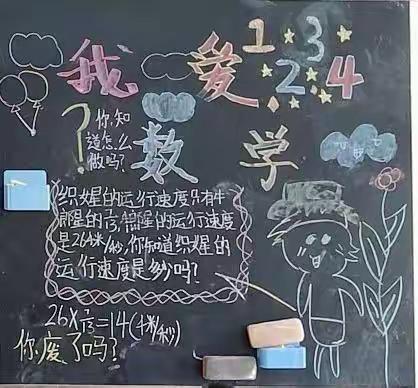 我爱1 2 3 4
数学
?你知
道怎么
做吗?
织女星的运行速度只有牛
郎星的7/13,牛郎星的运行速度
是26千米/秒,你知道织女星的
运行速度是多少吗?
26×7/13=14(千米/秒)
你废了吗?